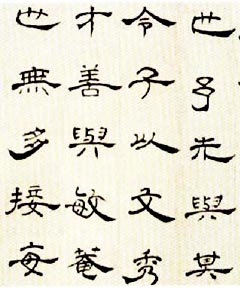 也予先與其
令子以文秀
才善與敏菴
也無多接每